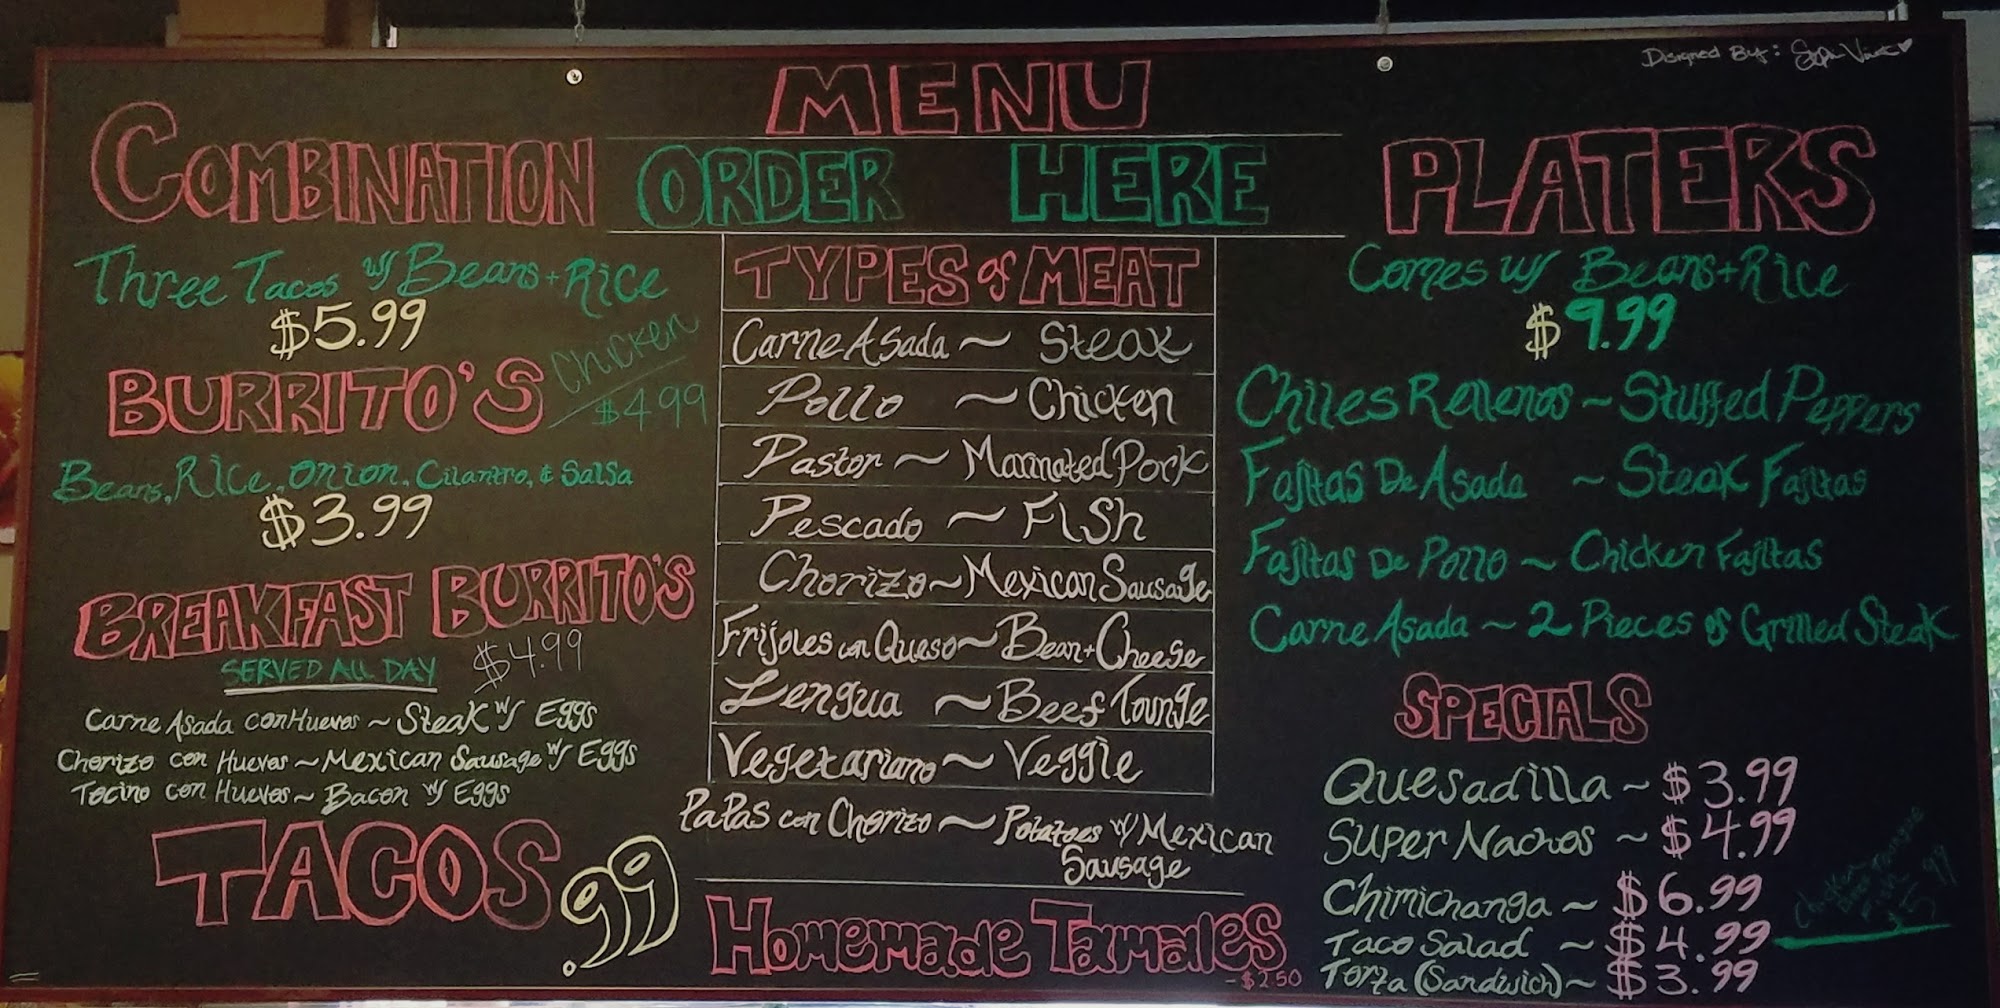 Designed By:
MENU
ORDER HERE
COMBINATION
Three Tacos w/ Beans + Rice
$5.99
BURRITO'S
Chicken
$4.99
Beans, Rice, Onion, Cilantro, & Salsa
$3.99
BREAKFAST BURRITO'S
SERVED ALL DAY $4.99
Carne Asada con Huevos ~ Steak w/ Eggs
Chorizo con Huevos ~ Mexican Sausage w/ Eggs
Tocino con Huevos ~ Bacon w/ Eggs
TACOS .99
TYPES of MEAT
Carne Asada ~ Steak
Pollo ~ Chicken
Pastor ~ Marinated Pork
Pescado ~ Fish
Chorizo ~ Mexican Sausage
Frijoles con Queso ~ Bean + Cheese
Lengua ~ Beef Tounge
Vegetariano ~ Veggie
Papas con Chorizo ~ Potatoes w/ Mexican
Sausage
Homemade Tamales
- $2.50
PLATERS
Comes w/ Beans + Rice
$9.99
Chiles Rellenos ~ Stuffed Peppers
Fajitas De Asada ~ Steak Fajitas
Fajitas De Pollo ~ Chicken Fajitas
Carne Asada ~ 2 Pieces of Grilled Steak
SPECIALS
Quesadilla ~ $3.99
Super Nachos ~ $4.99
Chimichanga ~ $6.99
Taco Salad ~ $4.99
Torta (Sandwich) ~ $3.99
Chicken
Beef Tounge
Fish
$5.99